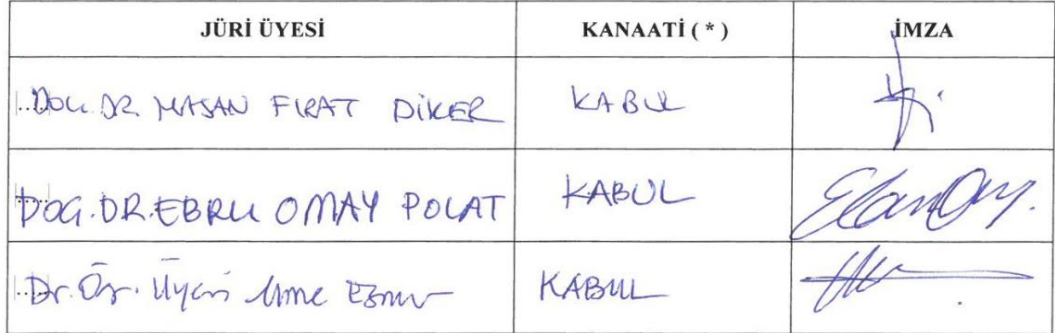 JÜRİ ÜYESİ KANAATİ ( * ) İMZA
DOÇ. DR. HASAN FIRAT DİKER KABUL
DOÇ. DR. EBRU OMAY POLAT KABUL
Dr. Öğr. Üyesi KABUL